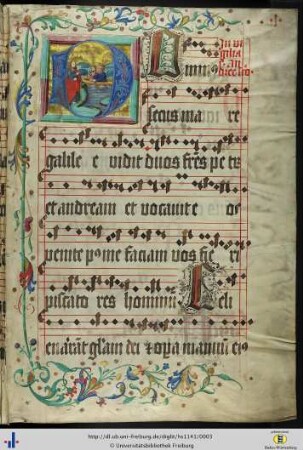 Dmin9
secus mare
galilee vidit duos frēs petrū
et andream et vocavit eos
venite p me faciam vos fieri
piscatores hominū Celi
enarāt glam dei & opa manuū ei9
http://dl.ub.uni-freiburg.de/diglit/hs1141/0003
© Universitätsbibliothek Freiburg